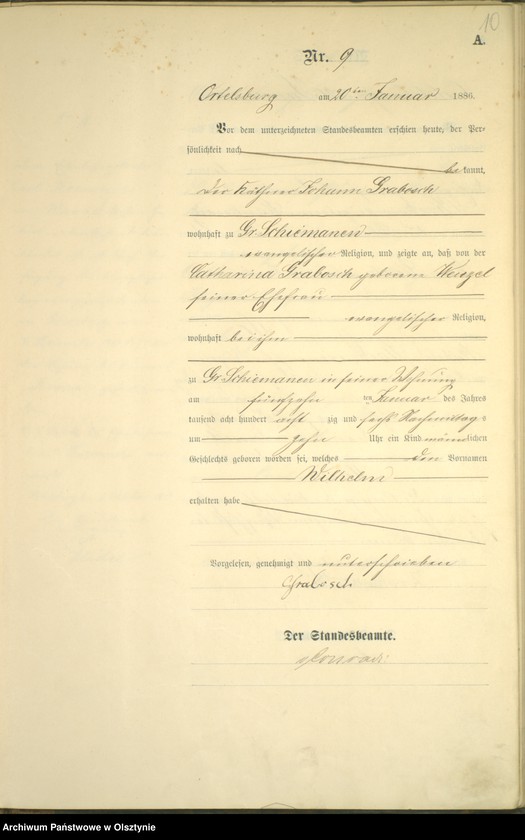 10
A.
Nr. 9
Ortelsburg am 20ten Januar 1886.
Vor dem unterzeichneten Standesbeamten erschien heute, der Per-
sönlichkeit nach
bekannt,
der Käthner Johann Grabosch
wohnhaft zu Gr. Schiemanen
evangelischer Religion, und zeigte an, daß von der
Catharina Grabosch geborene Wenzel
seiner Ehefrau
evangelischer Religion,
wohnhaft bei ihm
zu Gr. Schiemanen in seiner Wohnung
am fünfzehn ten Januar des Jahres
tausend acht hundert acht zig und sechs Nachmittag-
um zehn Uhr ein Kind männlichen
Geschlechts geboren worden sei, welches den Vornamen
Wilhelm
erhalten habe
Vorgelesen, genehmigt und unterschrieben
Grabosch
Der Standesbeamte.
Archiwum Państwowe w Olsztynie